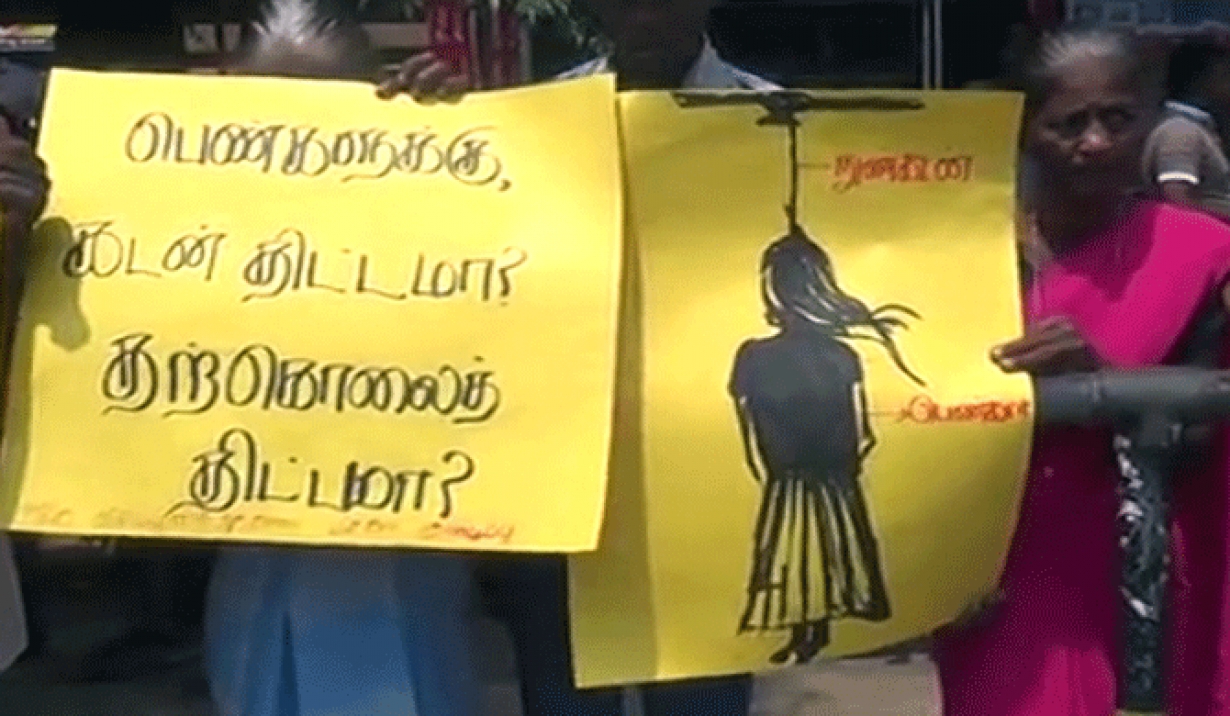 பெண்களுக்கு,
கடன் திட்டமா?
தற்கொலைத்
திட்டமா?
நுண்கடன்
பெண்கள்